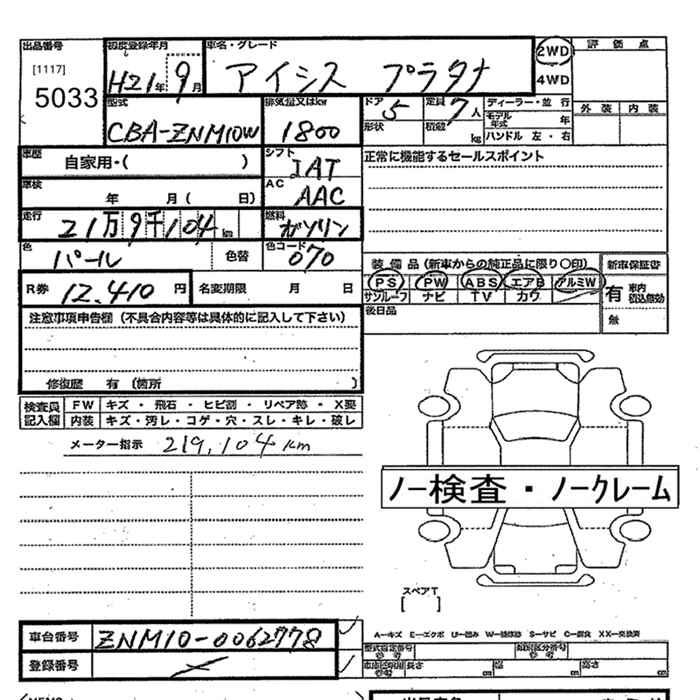 出品番号 初度登録年月 車名・グレード 2WD 評価点
[1117] 5033 H21年 9月 アイシス プラタナ 4WD 外装 内装
型式 排気量又はkw ドア 5 定員 7人 ディーラー・並行
CBA-ZNM10W 1800 形状 積載 kg モデル年式 年
ハンドル 左・右
車歴 自家用・( ) シフト IAT 正常に機能するセールスポイント
車検 年 月 ( 日) AC AAC
走行 21万9千104km 燃料 ガソリン
色 パール 色替 色コード 070
装備品 (新車からの純正品に限り〇印) 新車保証書
R券 12,410円 名変期限 月 日 PS PW ABS エアB アルミW 有 車内積込無効
サンルーフ ナビ TV カワ
注意事項申告欄 (不具合内容等は具体的に記入して下さい) 後日品 無
修復歴 有 (箇所 )
検査員記入欄 FW キズ・飛石・ヒビ割・リペア跡・X要
内装 キズ・汚レ・コゲ・穴・スレ・キレ・破レ
メーター指示 219,104km
ノー検査・ノークレーム
スペアT
[ ]
車台番号 ZNM10-0062778
A=キズ E=エクボ U=凹み W=補修跡 S=サビ C=腐食 XX=交換済
登録番号
長さ cm 高さ